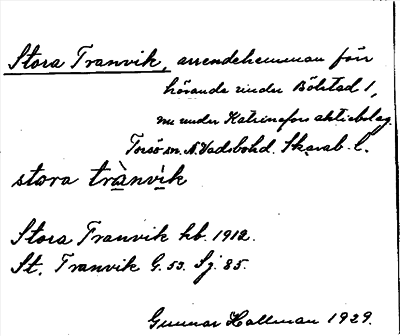 Stora Tranvik, arrendehemman förr
hörande under Bölstad 1,
nu under Katrinefors aktiebolag.
Torsö sn. N. Vadsbohd. Skarab. l.
stora trànvìk
Stora Tranvik kb. 1912.
St. Tranvik G. 53. Sj. 85.
Gunnar Hallman 1929.